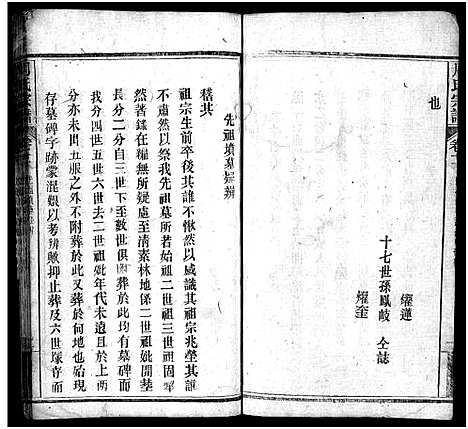 也
燿蓮
十七世孫鳳岐 仝誌
燿奎
先祖墳墓疑辨
稽其
祖宗生前卒後其誰不愀然以感識其祖宗兆塋其誰
不肅然以祭我先祖墓所若始祖二世祖三世祖固牢
然著錄在糧無所疑處至清素林地係二世祖妣開塟
長分二分自三世下至數世俱附葬於此均有墓碑可
我分四世五世六世去二世祖妣年代未遠且同
分亦未出五服之外不附葬於此又葬於何地
存墓碑字跡蒙混難以考辨歟抑止葬及六世塚脊而